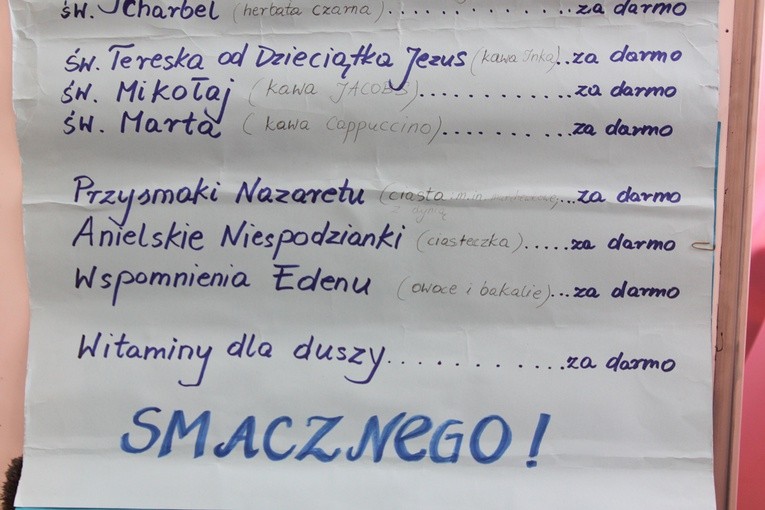 św. Charbel (herbata czarna)..................za darmo
św. Tereska od Dzieciątka Jezus (kawa Inka)...za darmo
św. Mikołaj (kawa JACOBS)............za darmo
św. Marta (kawa cappuccino)..........za darmo
Przysmaki Nazaretu (ciasta m.in. ...za darmo
z dynią
Anielskie Niespodzianki (ciasteczka).....za darmo
Wspomnienia Edenu (owoce i bakalie)...za darmo
Witaminy dla duszy.............za darmo
SMACZNEGO!